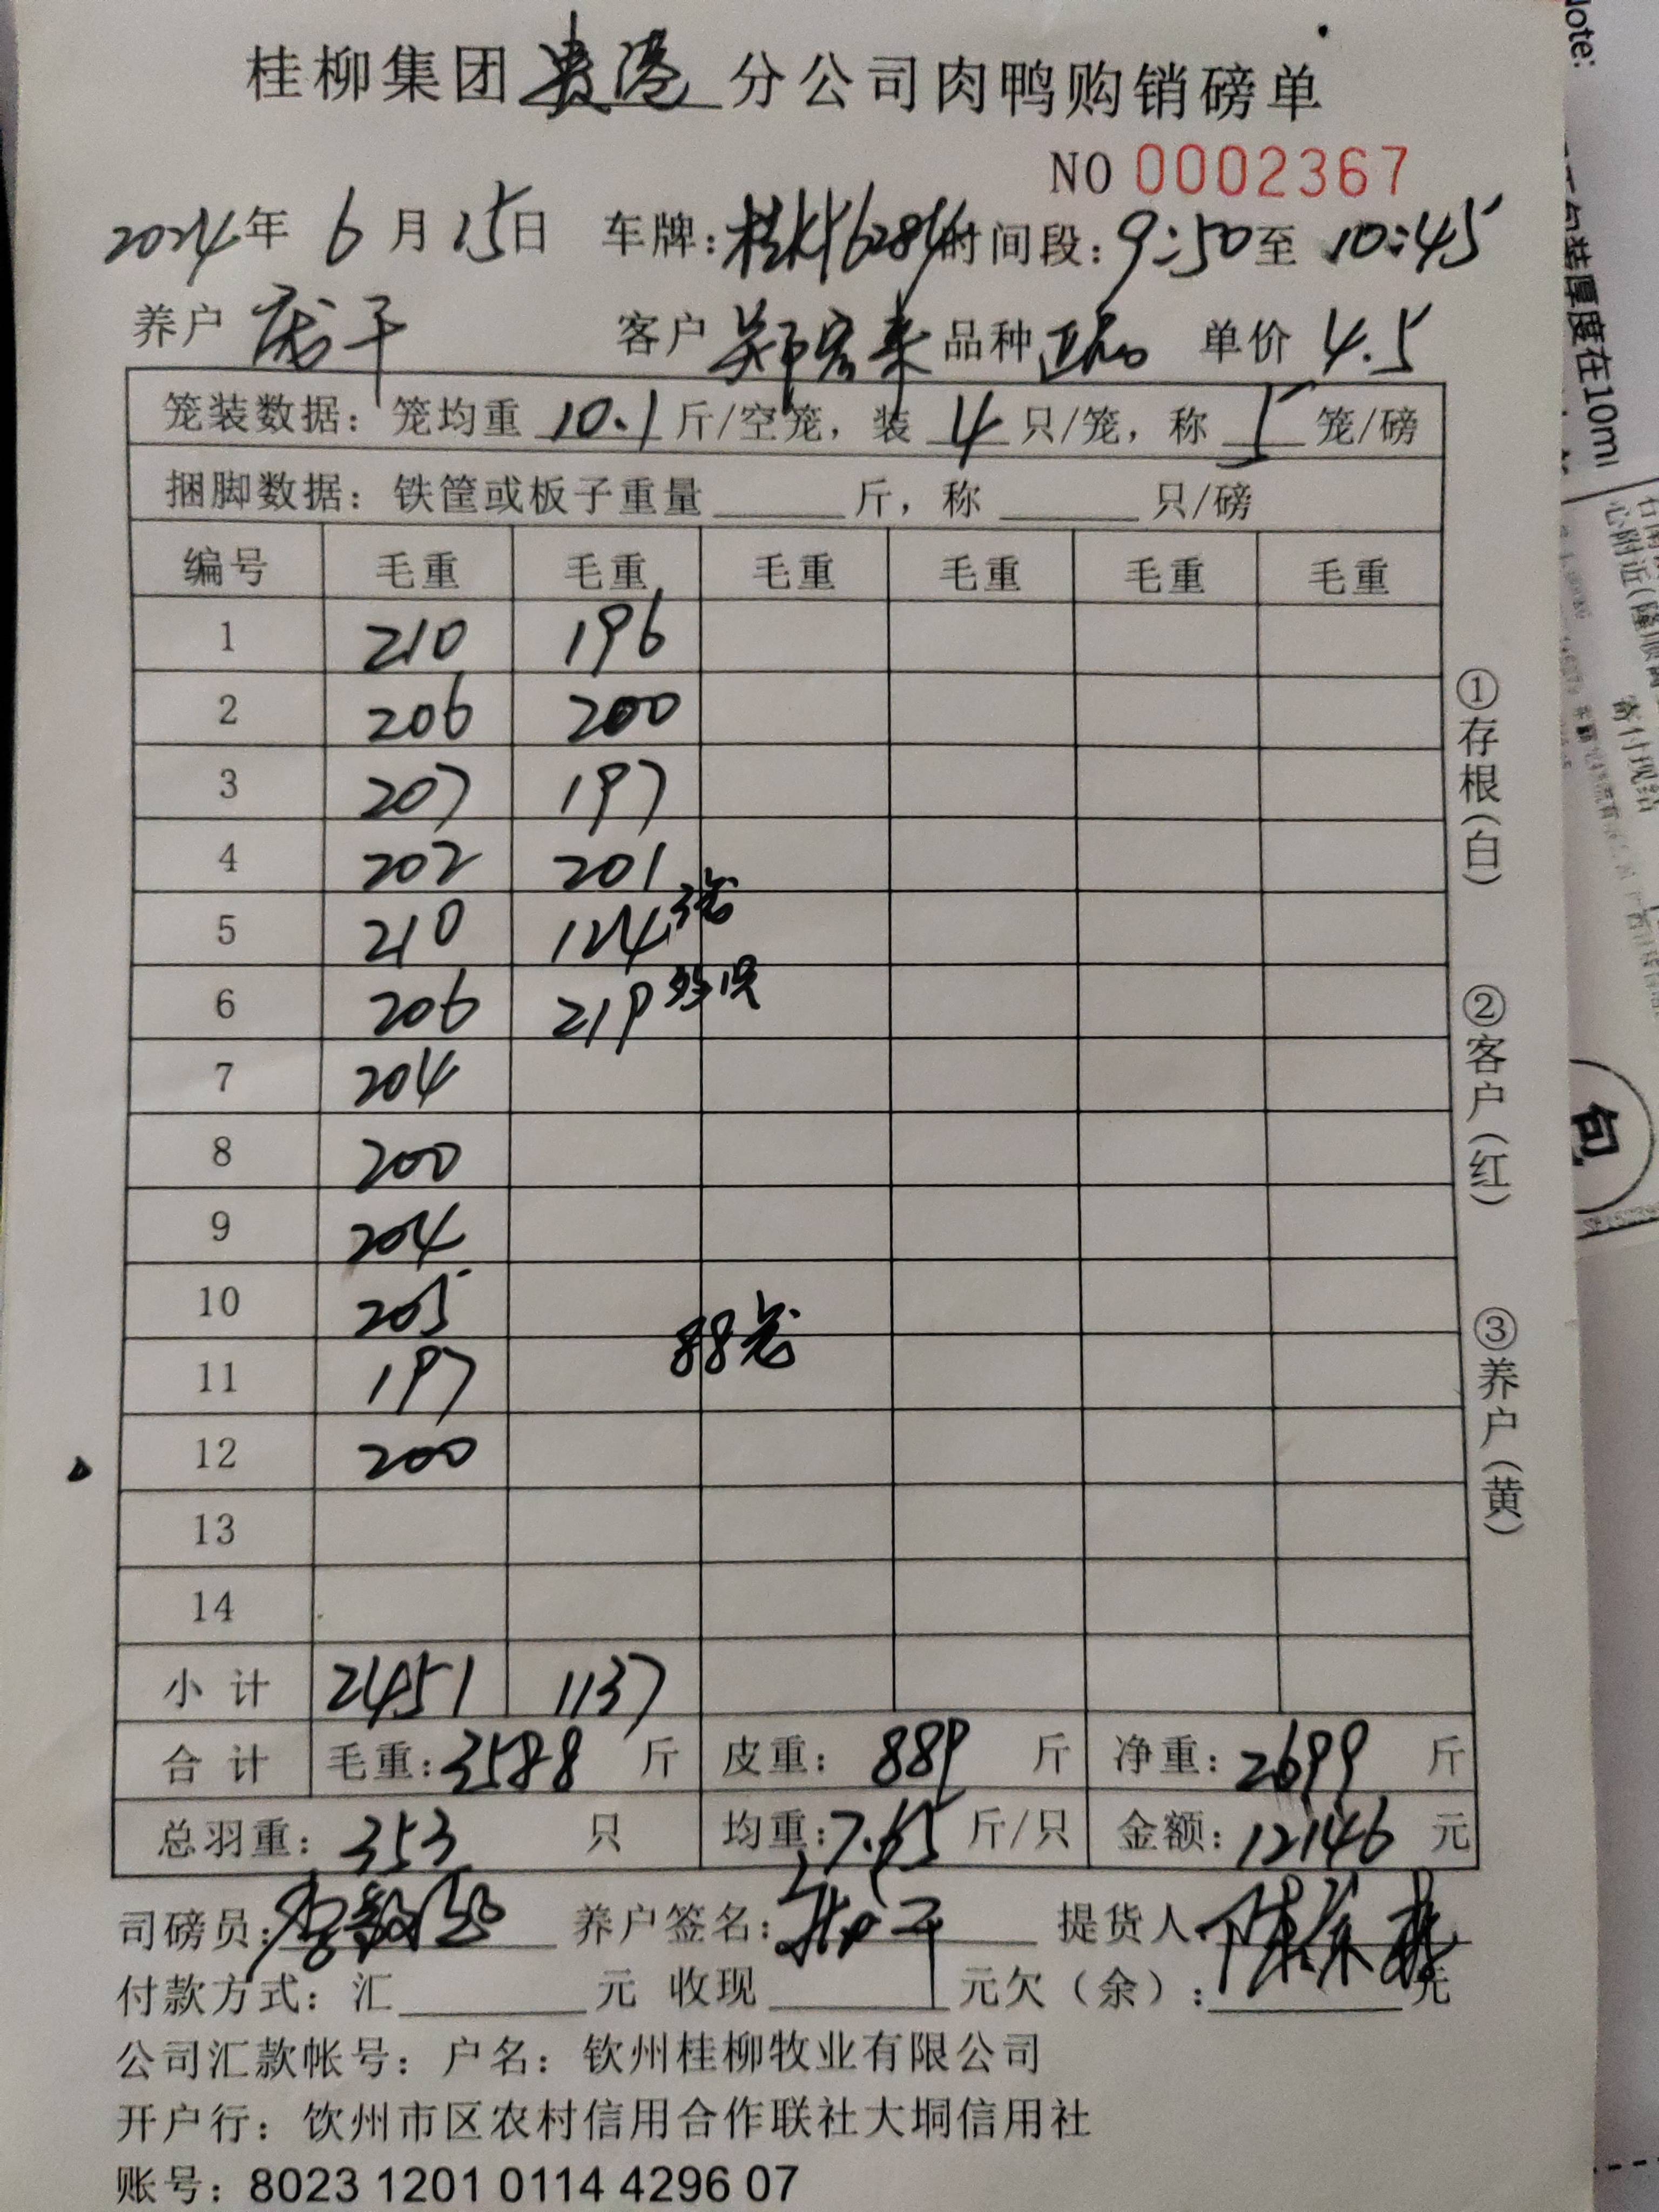 桂柳集团贵港分公司肉鸭购销磅单
NO 0002367
2024年 6月15日 车牌: 时间段:9:50至10:45
养户 客户 郑宏来 品种 单价 4.5
笼装数据：笼均重 10.1 斤/空笼，装 4 只/笼，称 5 笼/磅
捆脚数据：铁筐或板子重量 斤，称 只/磅
编号 毛重 毛重 毛重 毛重 毛重 毛重
1 210 196
2 206 200
3 207 197
4 202 201
5 210 124 3笼
6 206 219 1只
7 204
8 200
9 204
10 205
88笼
11 197
12 200
13
14
小计 2451 1137
合计 毛重:3588 斤 皮重: 889 斤 净重:2699 斤
总羽重: 353 只 均重:7.65 斤/只 金额:12146 元
司磅员: 养户签名: 提货人:
付款方式：汇 元 收现 元欠（余）: 元
公司汇款帐号：户名：钦州桂柳牧业有限公司
开户行：钦州市区农村信用合作联社大垌信用社
账号：8023 1201 0114 4296 07
①存根(白)
②客户(红)
③养户(黄)
包